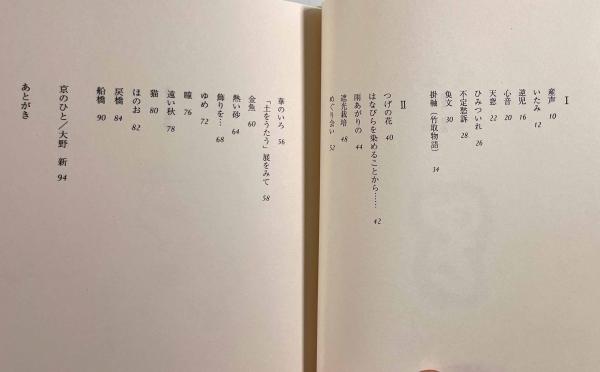 Ⅰ
産声 10
いたみ 12
逆児 16
心音 20
天窓 22
ひみついれ 26
不定愁訴 28
魚文 30
掛軸(竹取物語) 34
Ⅱ
つげの花 40
はなびらを染めることから…… 42
雨あがりの 44
遮光栽培 48
めぐり会い 52
華のいろ 56
「土をうたう」展をみて 58
金魚 60
熱い砂 64
飾りを… 68
ゆめ 72
瞳 76
遠い秋 78
猫 80
ほのお 82
戻橋 84
船橋 90
京のひと/大野 新 94
あとがき